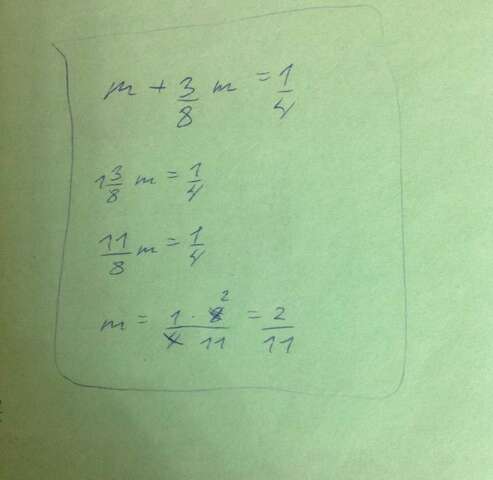 m + 3/8 m = 1/4
1 3/8 m = 1/4
11/8 m = 1/4
m = 1 · 8 2 / 4 11 = 2/11